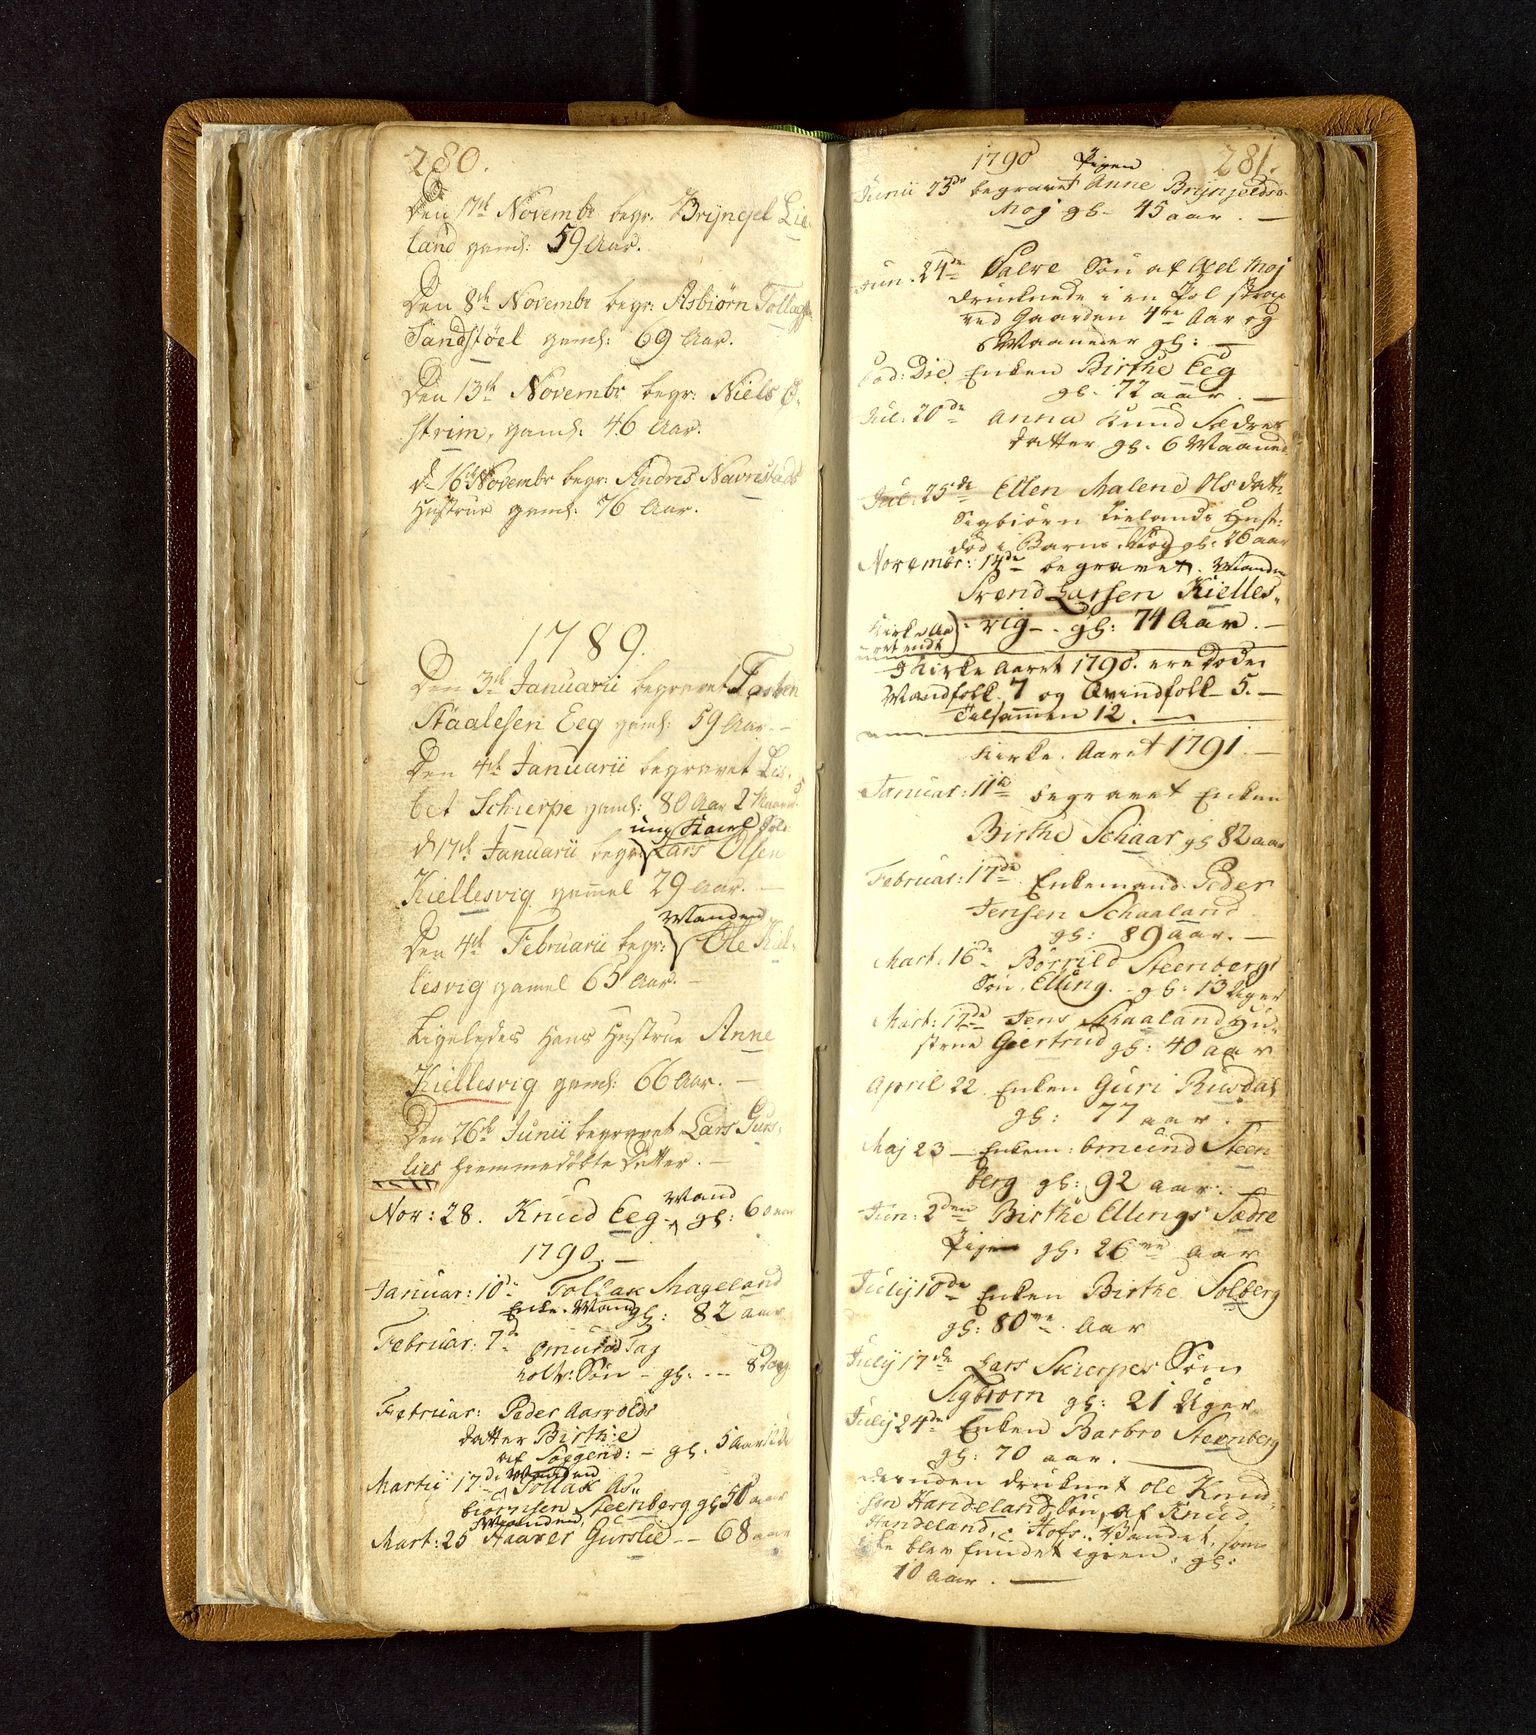 280.
Den 17de Novembr begr: Brynjel Lie,,
land gaml: 59 Aar.
Den 8de Novembr begr: Asbiørn Tollags
Sandstöel gaml: 69 Aar.
Den 13de Novembr begr: Niels O,,
strim, gaml: 46 Aar.
d. 16de Novembr begr: Andres Navrestads
Hustrue gaml: 76 Aar.
1789.
Den 3de Januarii begravet Torben
Staalesen Eeg gaml: 59 Aar. –
Den 4de Januarii begravet Lis,,
bet Schierpe gaml: 80 Aar 2 Maan
ung Karl
d 17de Januarii begr: Lars Olsen
Kiellesvig gamel 29 Aar. –
Manden
Den 4de Februarii begr: Ole Kiel,,
lesvig gamel 65 Aar. –
Ligeledes Hans Hustrue Anne
Kiellesvig gaml: 66 Aar. –
Den 26de Junii begravet Lars Gurs,,
lies hiemmedøbte Datter. –
Mand
Nov: 28. Knud Eeg – gl: 60 aar
1790. –
Januar: 10de Tollak Mageland
Enke-Mand gl: 82 aar
Februar: 7de Omund Tag
holts: Søn – gl: -- 8 Dage
Februar: Peder Aasvolds
datter Birthe
af Soggend: – gl: 5 Aar
Manden
Martii 17de Tollak As,,
biørnsen Steenberg gl 50 aar
Manden
Mart: 25 Haaver Gurslie -- 68 aar
1790 281.
Pigen
Junii 23de begravet Anne Brynjeldsd
Moj gl- 45 aar. –
Jun: 24de Salve Søn af Axel Moj
druknede i en Pøl strax
ved Gaarden 4re Aar og
6 Maaneder gl: –
Eod: Die Enken Birthe Eeg
gl. 72 aar. –
Jul: 20de Anna Knud Sædres
datter gl. 6 Maaned
Jul: 25de Ellen Malene Ols datt:
Sigbiørn Lielands Hust:
død i Barns Nød gl: 26 aar
Novembr: 14de begravet Manden
Svend Larsen Kielles,,
Kirke Aa rig – gl: 74 Aar. –
ret endt
I Kirke Aaret 1790. ere døde
Mandfolk 7 og Qvindfolk 5. –
Tilsammen 12. –
Kirke. Aaret 1791. –
Januar: 11te begravet Enken
Birthe Schaar gl 82 aar
Februar: 17de Enkemand Peder
Jensen Schaaland
gl: 89 aar. –
Mart: 16de Børrild Steenbergs
Søn, Elling. – gl: 13 Uger
Mart: 17de Jens Skaaland Hu,,
strue Giertrud gl: 40 aar
April 22 Enken Guri Rusdal
gl: 77 aar. –
Maj 23 – Enkem: Omund Steen
berg gl: 92 aar. –
Jun: 2den Birthe Ellings Sædre
Pige gl: 26 aar
Julij 10de Enken Birthe Solberg
gl: 80 Aar
Julij 17de Lars Skierpes Søn
Sigbiørn gl: 21 Uger
Julij 24de Enken Barbro Steenberg
gl: 70 aar. –
druknet Ole Knud,,
sen Handeland, Søn af Knud
Handeland, i Hofs Vandet, som
ikke blev fundet igien, gl:
10 aar. –